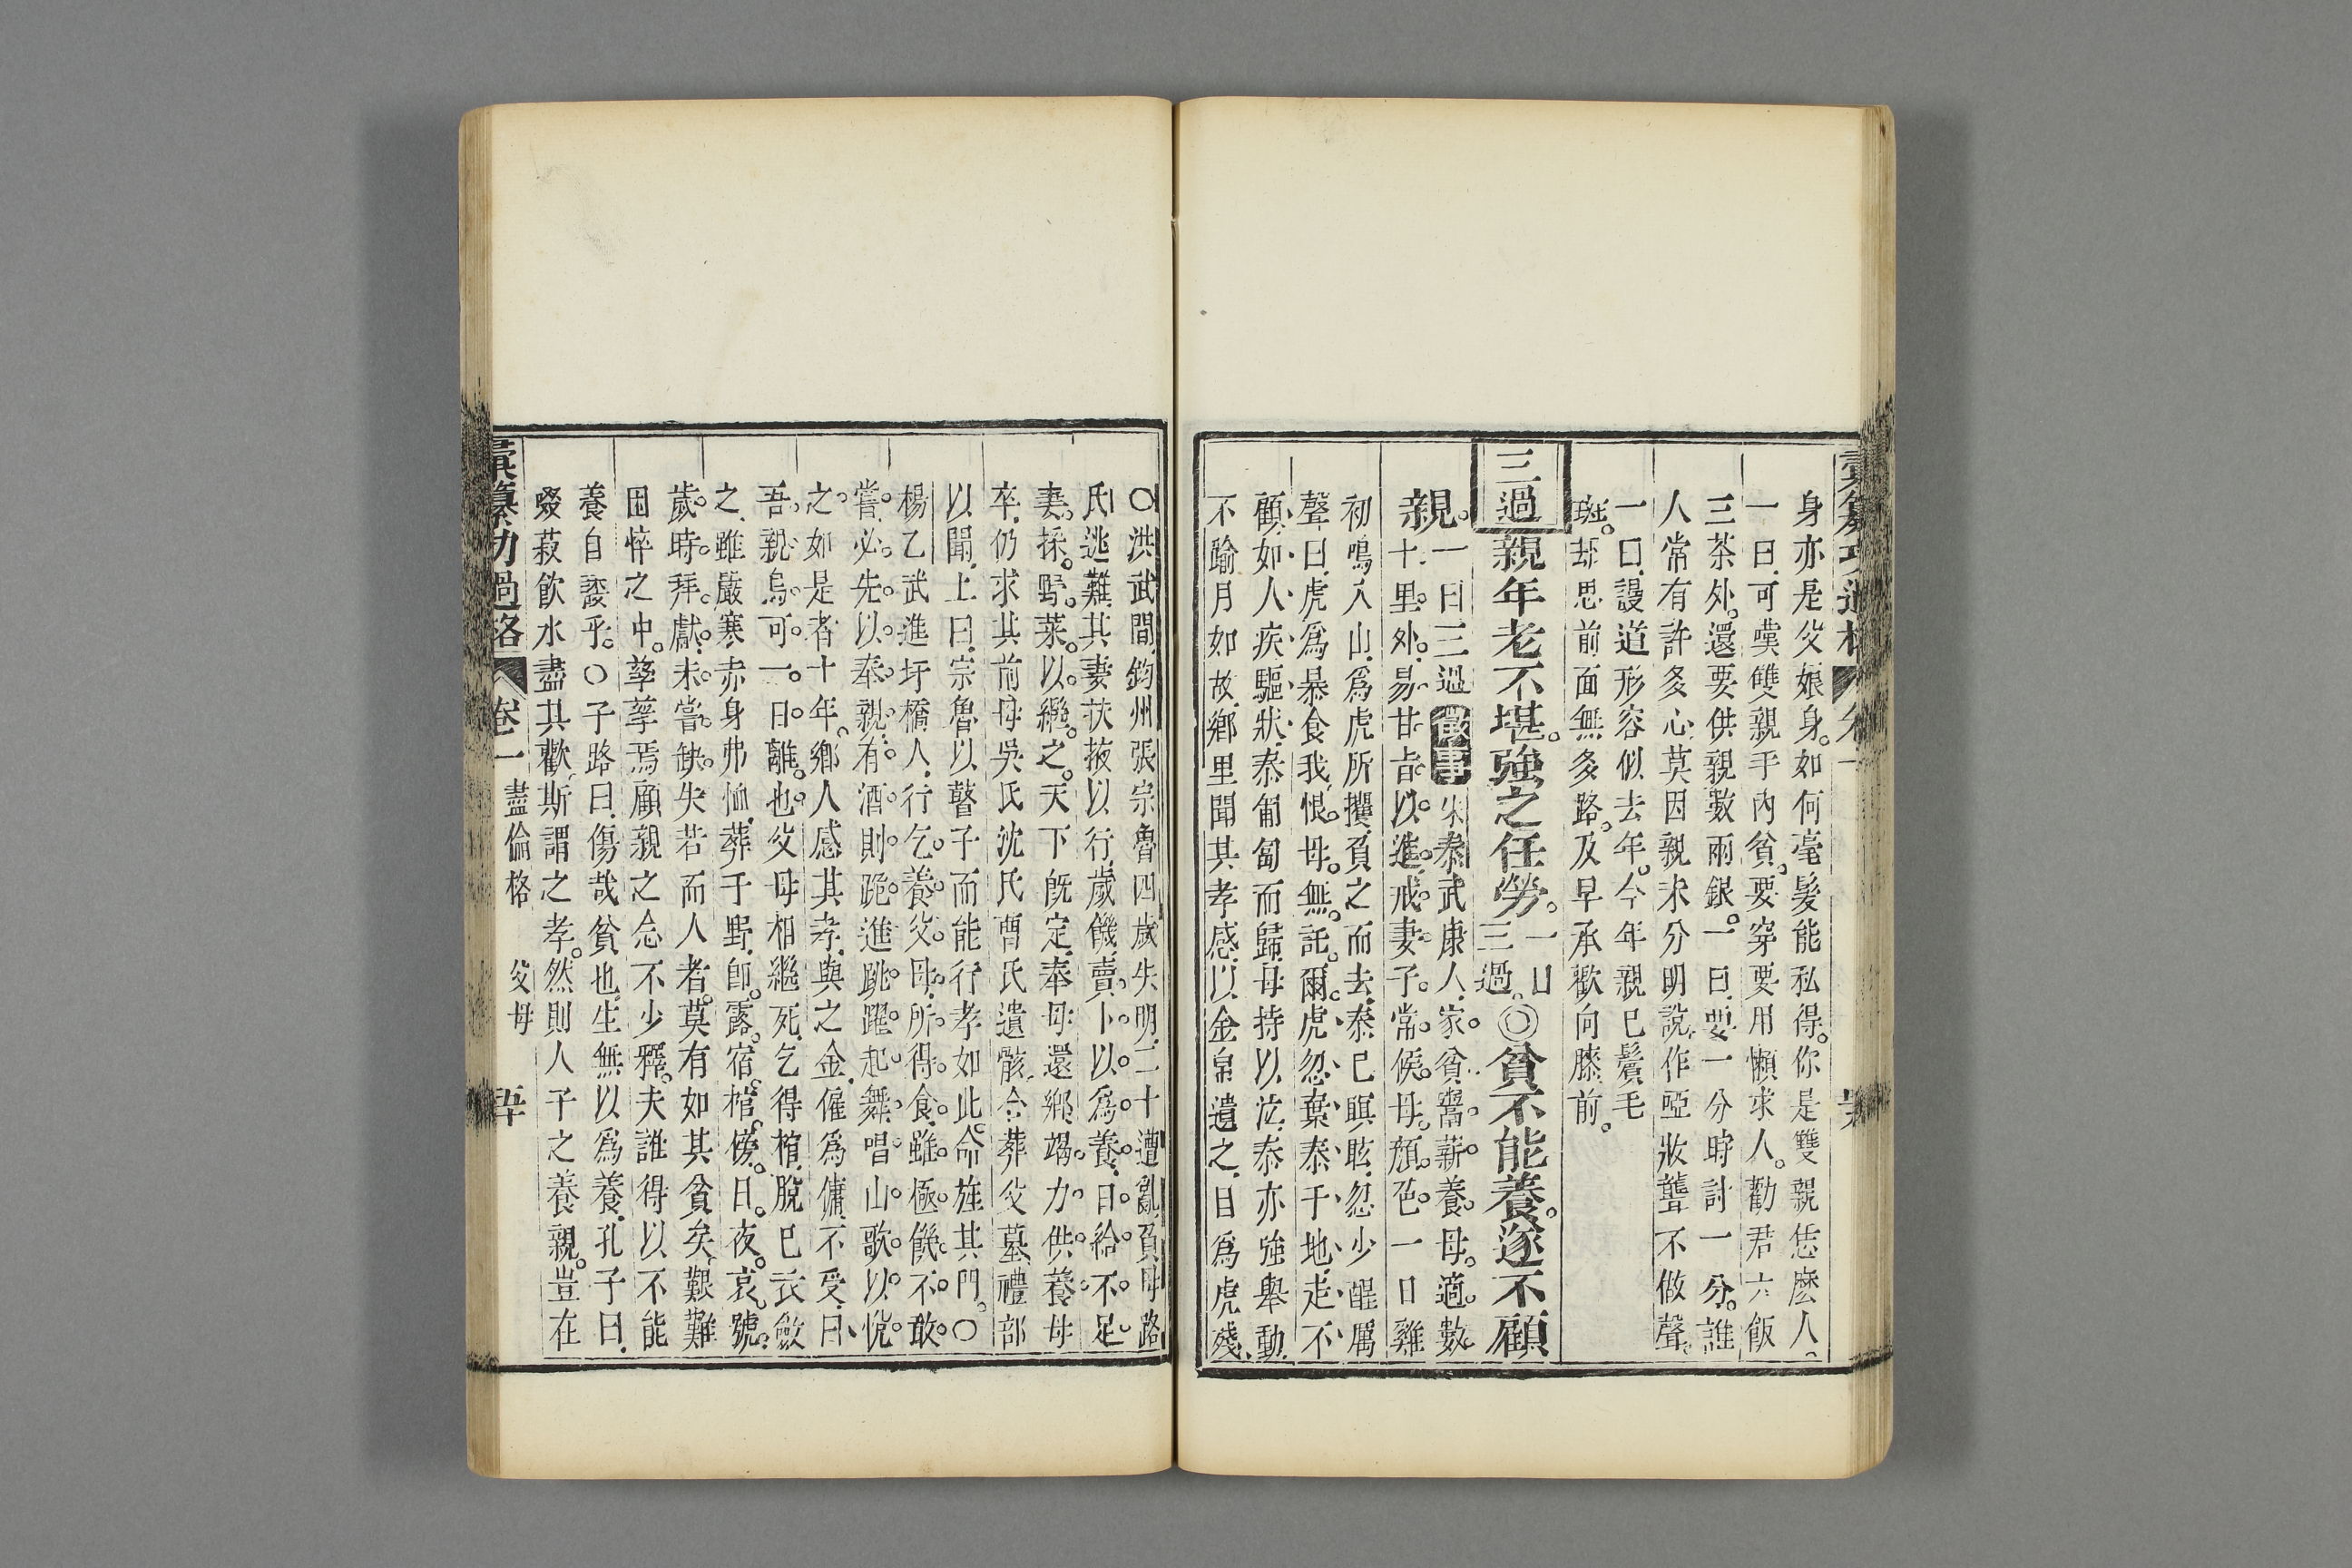 身亦是父娘身。如何毫髮能私得。你是雙親恁麽人。
一曰可嘆雙親手內貧。要穿要用懶求人。勸君六飯
三茶外。還要供親數兩銀。一曰要一分時討一分。誰
人常有許多心。莫因親未分明說。作啞粧聾不做聲。
一曰謾道形容似去年。今年親已鬢毛
斑。却思前面無多路。及早承歡向膝前。
三過 親年老不堪。強之任勞。一日三過。◎貧不能養。遂不顧
親。一日三過 徵事 朱泰武康人。家貧。鬻薪養母。適數
十里外。易甘旨以進。戒妻子。常候母顏色。一日雞
初鳴入山。爲虎所攫。負之而去。泰已瞑眩。忽少醒。厲
聲曰。虎爲暴食我。恨母無託爾。虎忽棄泰于地。走不
顧。如人疾驅狀。泰匍匐而歸。母持以泣。泰亦強舉動。
不踰月如故。鄉里聞其孝感。以金帛遺之。目爲虎殘。
○洪武間。鈞州張宗魯四歲失明。二十遭亂。負母路
氏逃難。其妻扶掖以行。歲饑。賣卜以爲養。日給不足。
妻採野菜以繼之。天下旣定。奉母還鄉。竭力供養。母
卒。仍求其前母吳氏沈氏曹氏遺骸。合葬父墓。禮部
以聞。上曰。宗魯以瞽子而能行孝如此。命旌其門。○
楊乙武進圩橋人。行乞養父母。所得食。雖極饑不敢
嘗。必先以奉親。有酒則跪進。跳躍起舞。唱山歌以悅
之。如是者十年。鄉人感其孝。與之金。僱爲傭。不受。曰。
吾親烏可一日離也。父母相繼死。乞得棺。脫已衣斂
之。雖嚴寒。赤身弗恤。葬于野。卽露宿棺傍。日夜哀號。
歲時拜獻。未嘗缺失。若而人者。莫有如其貧矣。艱難
困悴之中。孳孳焉顧親之念不少釋。夫誰得以不能
養自諉乎。○子路曰。傷哉貧也。生無以爲養。孔子曰。
啜菽飲水盡其歡。斯謂之孝。然則人子之養親。豈在
彙纂功過格 卷一 盡倫格 父母